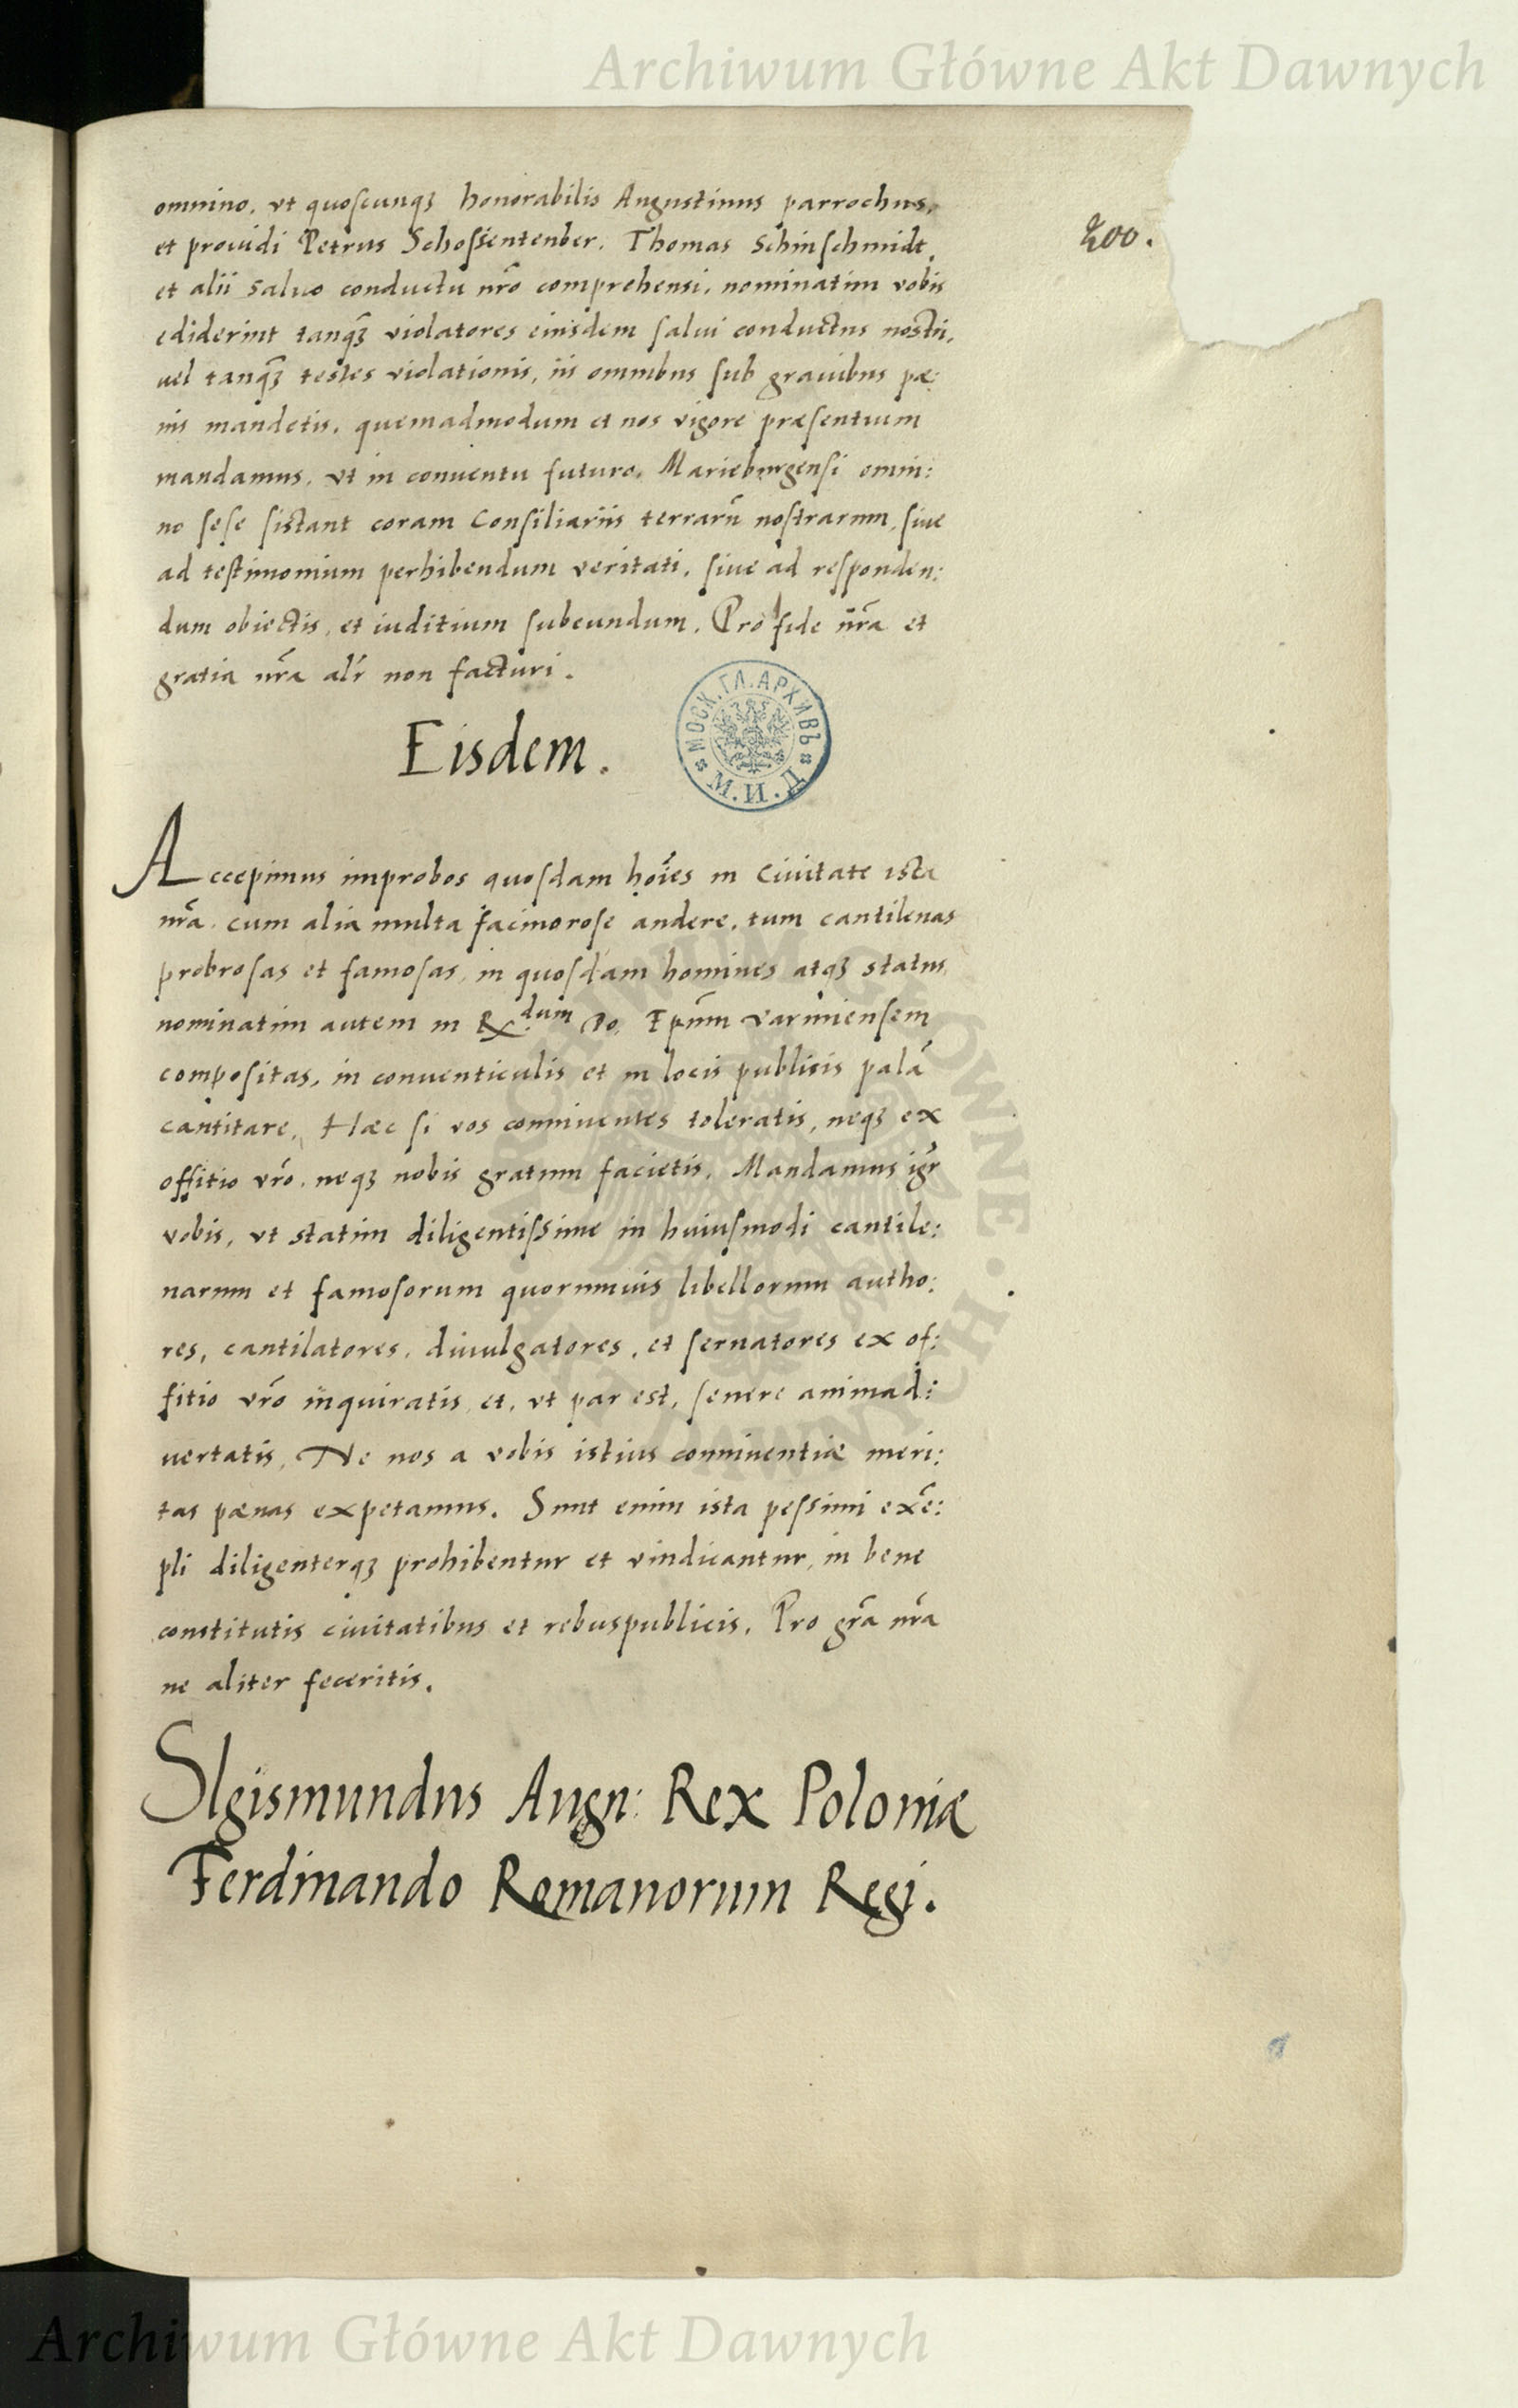 Archiwum Główne Akt Dawnych
200.
omnino, vt quoscunqȝ honorabilis Augustinus parrochus,
et prouidi Petrus Schossentenber, Thomas Schinschmidt,
et alii saluo conductu nr̃o comprehensi, nominatim vobis
ediderint tanqȝ̃ violatores eiusdem salui conductus nostri,
uel tanqȝ̃ testes violationis, iis omnibus sub grauibus pæ:
nis mandetis, quemadmodum et nos vigore præsentium
mandamus, vt in conuentu futuro, Marieburgensi omni:
no sese sistant coram Consiliariis terrarũ nostrarum, siue
ad testimonium perhibendum veritati, siue ad responden:
dum obiectis, et iuditium subeundum. Pro fide nr̃a et
gratia nr̃a alr̃ non facturi.
Eisdem.
МОСК. ГЛ. АРХИВЪ
М.И.Д
Accepimus improbos quosdam hoı̃es in Ciuitate ista
nr̃a, cum alia multa facinorose audere, tum cantilenas
probrosas et famosas, in quosdam homines atqȝ status,
nominatim autem in R.dum Do. Epũm varmiensem
compositas, in conuenticulis et in locis publicis palã
cantitare, Hæc si vos conniuentes toleratis, neqȝ ex
offitio vr̃o, neqȝ nobis gratum facietis. Mandamus igr̃
vobis, vt statim diligentissime in huiusmodi cantile:
narum et famosorum quorumuis libellorum autho:
res, cantilatores, diuulgatores, et seruatores ex of:
fitio vr̃o inquiratis, et, vt par est, seuere animad:
uertatis, Ne nos a vobis istius conniuentiæ meri:
tas pænas expetamus. Sunt enim ista pessimi exẽ:
pli diligenterqȝ prohibentur et vindicantur, in bene
constitutis ciuitatibus et rebuspublicis. Pro gr̃a nr̃a
ne aliter feceritis.
SIgismundus Augu: Rex Poloniæ
Ferdinando Romanorum Regi.
Archiwum Główne Akt Dawnych